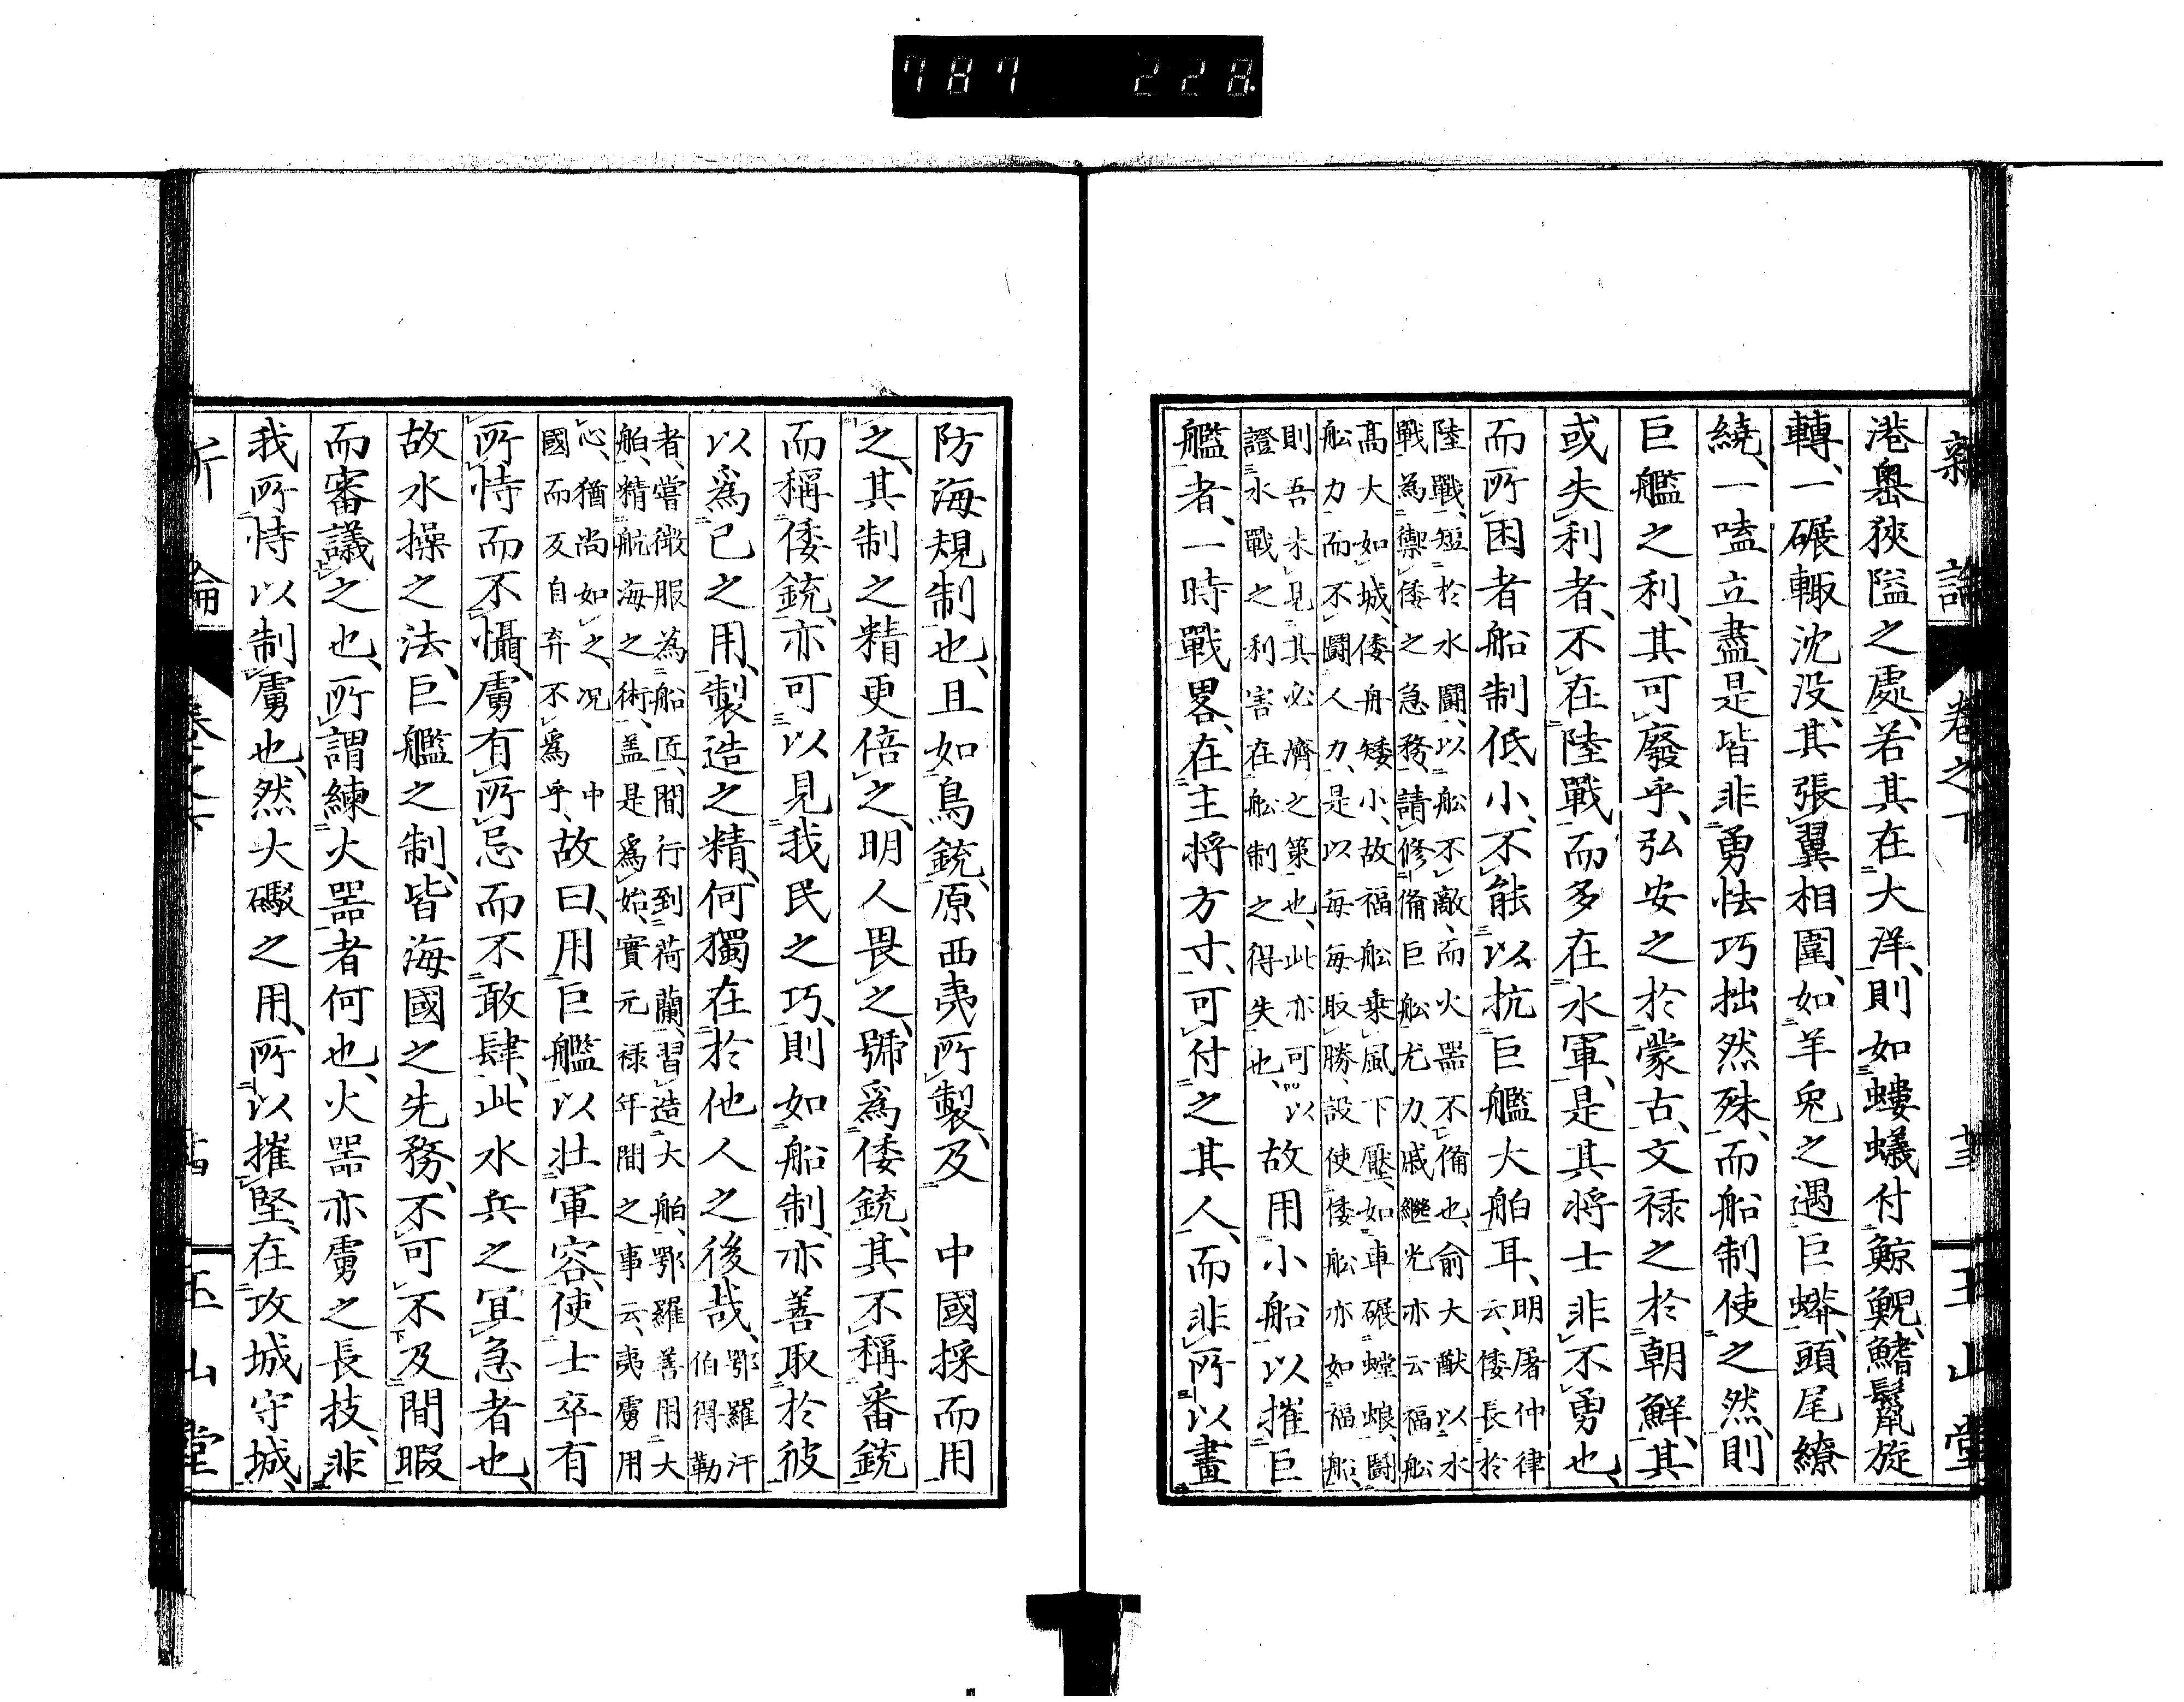 787 228
新論 卷之下 玉山堂
港嶴狹隘之處、若其在大洋、則如螻蟻付鯨鯢、鰭鬣旋
轉、一碾輙沈没、其張翼相圍、如羊兔之遇巨蟒、頭尾繚
繞、一嗑立盡、是皆非勇怯巧拙然殊、而船制使之然、則
巨艦之利、其可廢乎、弘安之於蒙古、文禄之於朝鮮、其
或失利者、不在陸戰、而多在水軍、是其將士非不勇也、
而所困者船制低小、不能以抗巨艦大舶耳、明屠仲律云、倭長於
陸戰、短於水鬪、以舩不敵、而火器不備也、俞大猷以水
戰為禦倭之急務、請修備巨舩尤力、戚繼光亦云福舩
高大如城、倭舟矮小、故福舩乗風下壓、如車碾螳蜋、鬪
舩力而不鬪人力、是以每每取勝、設使倭舩亦如福舩、
則吾未見其必濟之策也、此亦可以
證水戰之利害在舩制之得失也、故用小船以摧巨
艦者、一時戰畧、在主將方寸、可付之其人、而非所以畫
防海規制也、且如鳥銃、原西夷所製、及 中國採而用
之、其制之精更倍之、明人畏之、號爲倭銃、其不稱番銃
而稱倭銃、亦可以見我民之巧、則如船制、亦善取於彼
以爲己之用、製造之精、何獨在於他人之後哉、鄂羅汗伯得勒
者、嘗微服為船匠、間行到荷蘭、習造大舶、鄂羅善用大
舶、精航海之術、盖是爲始、實元禄年間之事云、夷虜用
心、猶尚如之、况 中
國而反自弃不爲乎、故曰、用巨艦以壯軍容、使士卒有
所恃而不懾、虜有所忌而不敢肆、此水兵之冝急者也、
故水操之法、巨艦之制、皆海國之先務、不可不及間暇
而審議之也、所謂練火器者何也、火器亦虜之長技、非
我所恃以制虜也、然大礮之用、所以摧堅、在攻城守城、
新論 卷之下 玉山堂